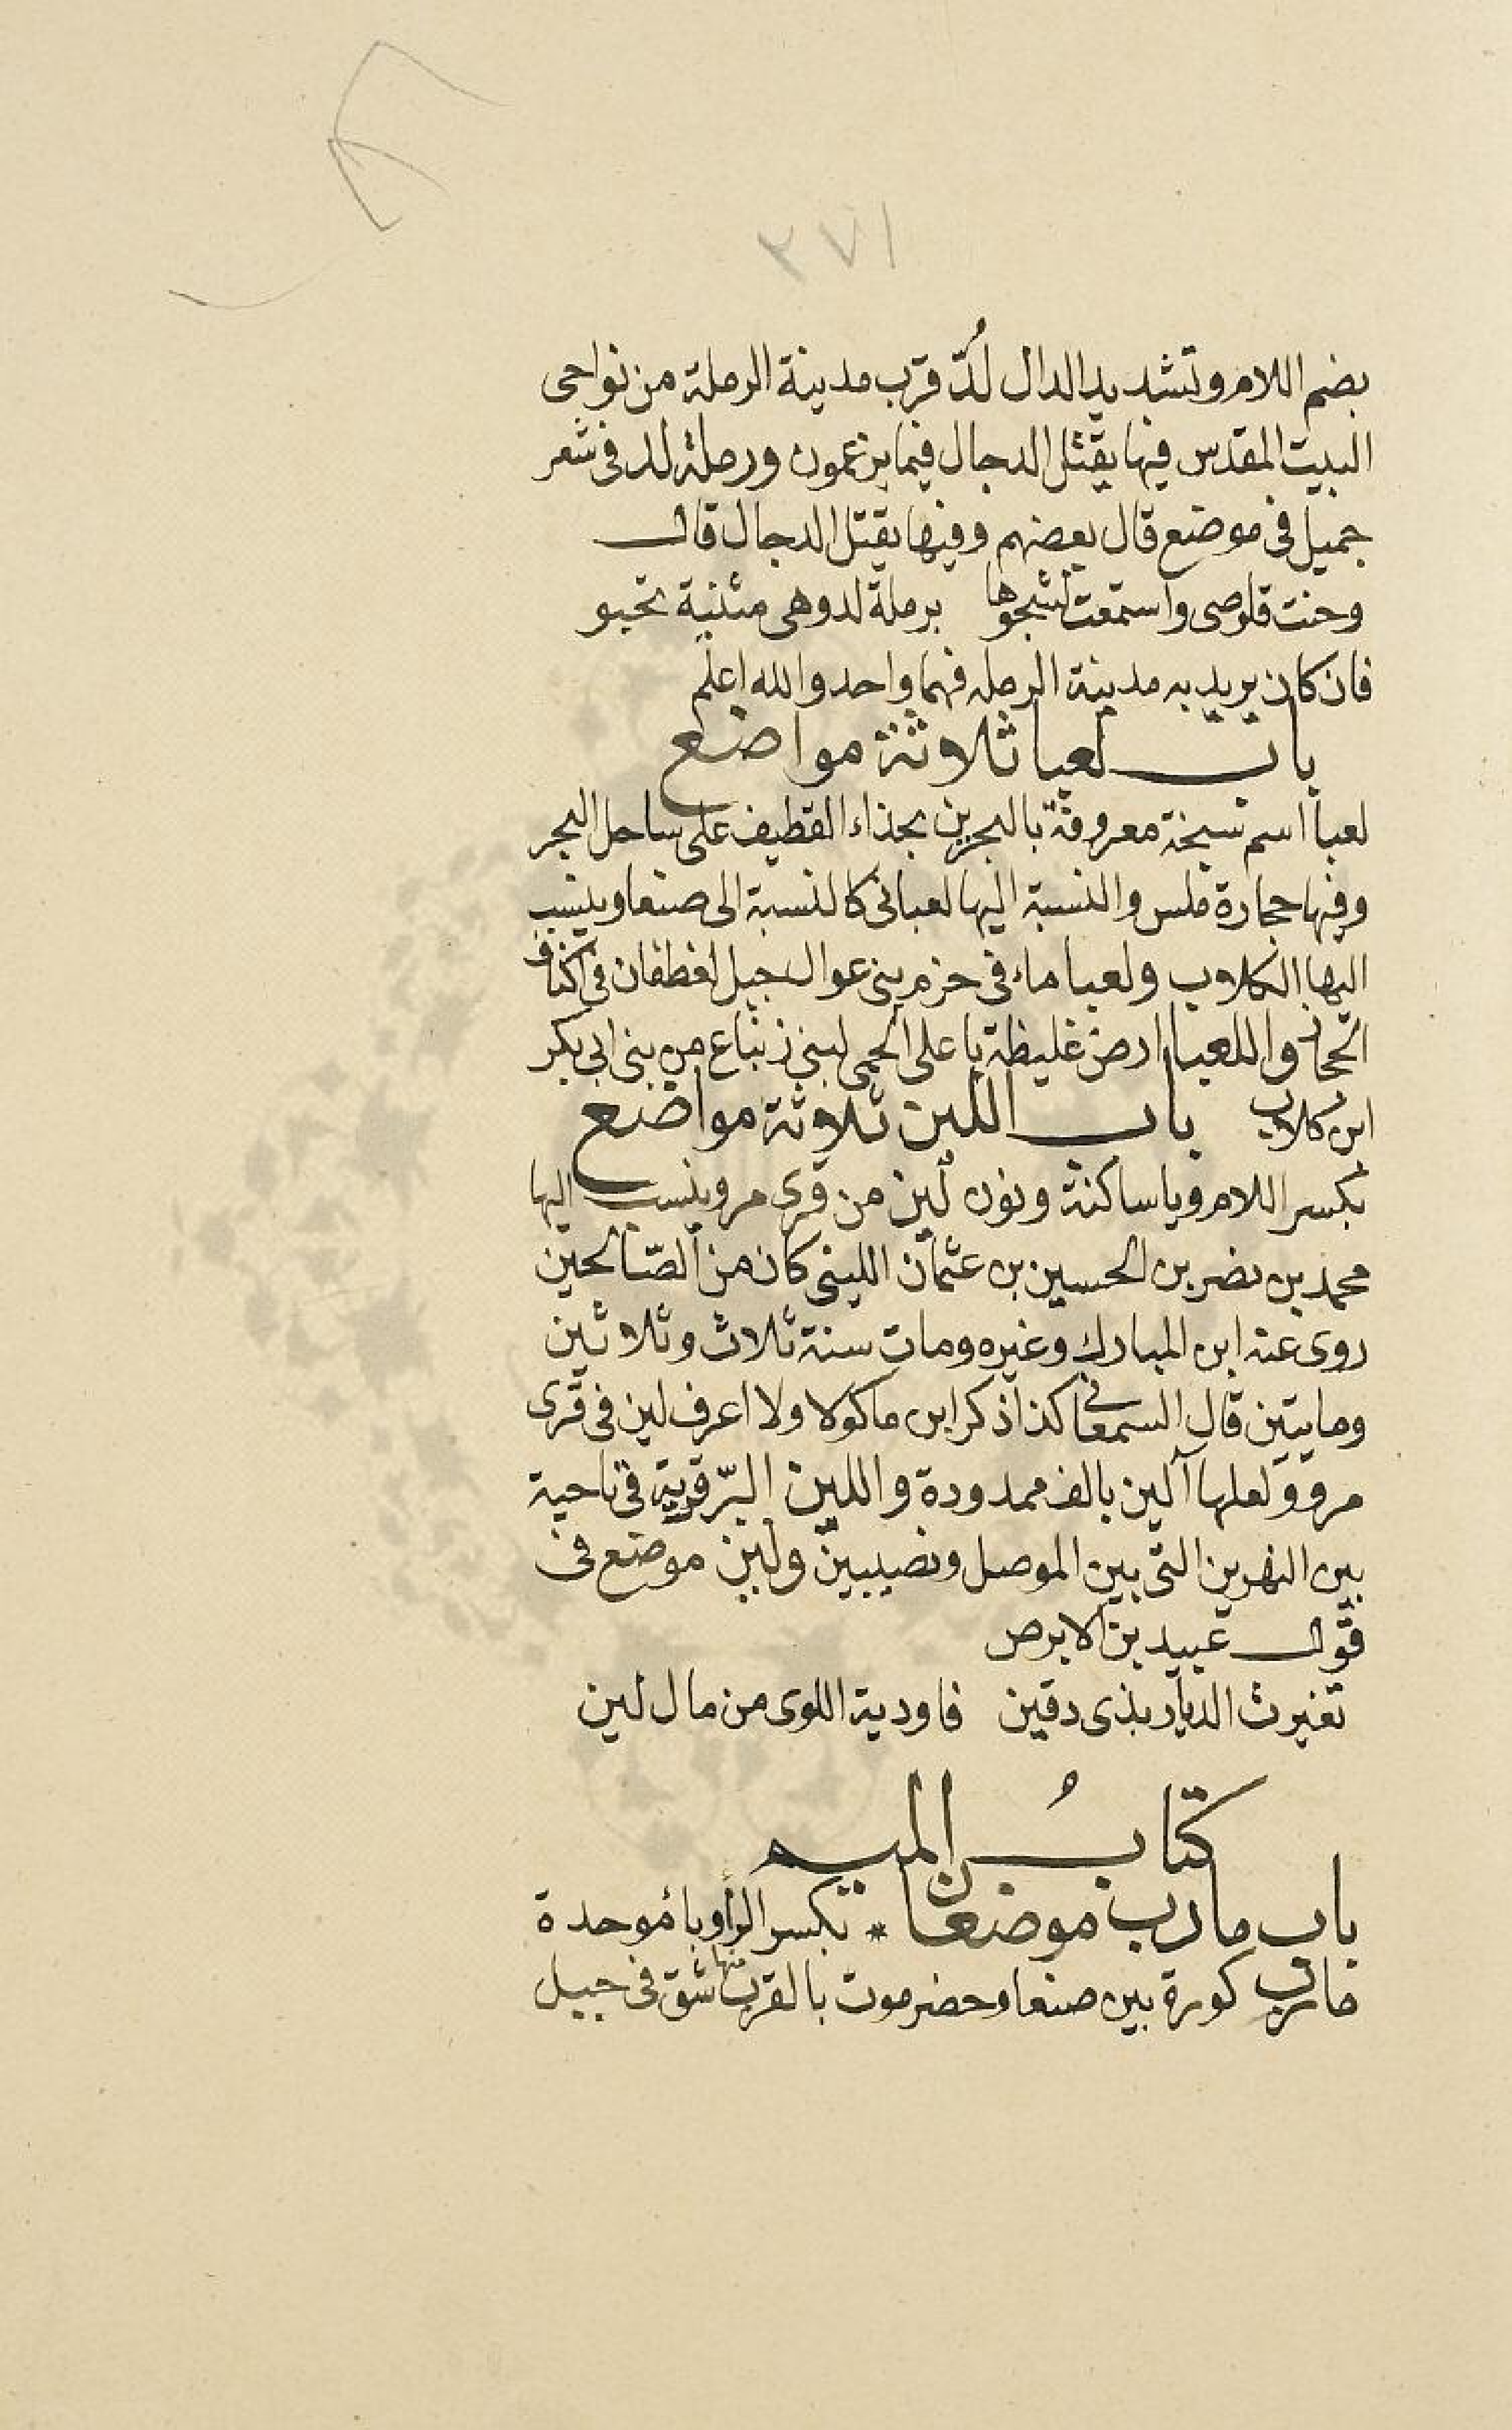 ٣٧١
بضم اللام وتشديد الدال لُدّ قرب مدينة الرملة من نواحى
البيت المقدس فيها يقتل الدجال فيما يزعمون ورملة لد فى شعر
جميل فى موضع قال بعضهم وفيها يقتل الدجال قال
وحنت قلوصى واستمعت لشجوها برملة لد وهى مثنية تحبو
فان كان يريد به مدينة الرمله فهما واحد والله اعلم
باب لعبا ثلاثة مواضع
لعبا اسم سبخة معروفة بالبحرين بحذاء القطيف على ساحل البحر
وفيها حجارة ملس والنسبة اليها لعبانى كالنسبة الى صنعا وينسب
اليها الكلاب ولعبا ماء فى حزم بنى عوال جبل لغطفان فى اكناف
الحجاز واللعبا ارض غليظة باعلى الحمى لبنى زنباع من بنى ابى بكر
ابن كلاب باب اللين ثلاثة مواضع
بكسر اللام ويا ساكنة ونون لين من قرى مرو ينسب اليها
محمد بن نصر بن الحسين بن عثمان اللينى كان من الصّالحين
روى عنه ابن المبارك وغيره ومات سنة ثلاث وثلاثين
ومايتين قال السمعانى كذا ذكر ابن ماكولا ولا اعرف لين فى قرى
مرو ولعلها آلين بالف ممدودة واللين البّر قرية فى ناحية
بين النهرين التى بين الموصل ونصيبين ولين موضع فى
قول عبيد بن الابرص
تغيرت الديار بذى دقين فاودية اللوى من مال لين
كتابُ الميم
باب مارب موضعان * بكسر الرأ وبأ موحدة
مارب كورة بين صنعا وحضرموت بالقرب منها شق فى جبيل